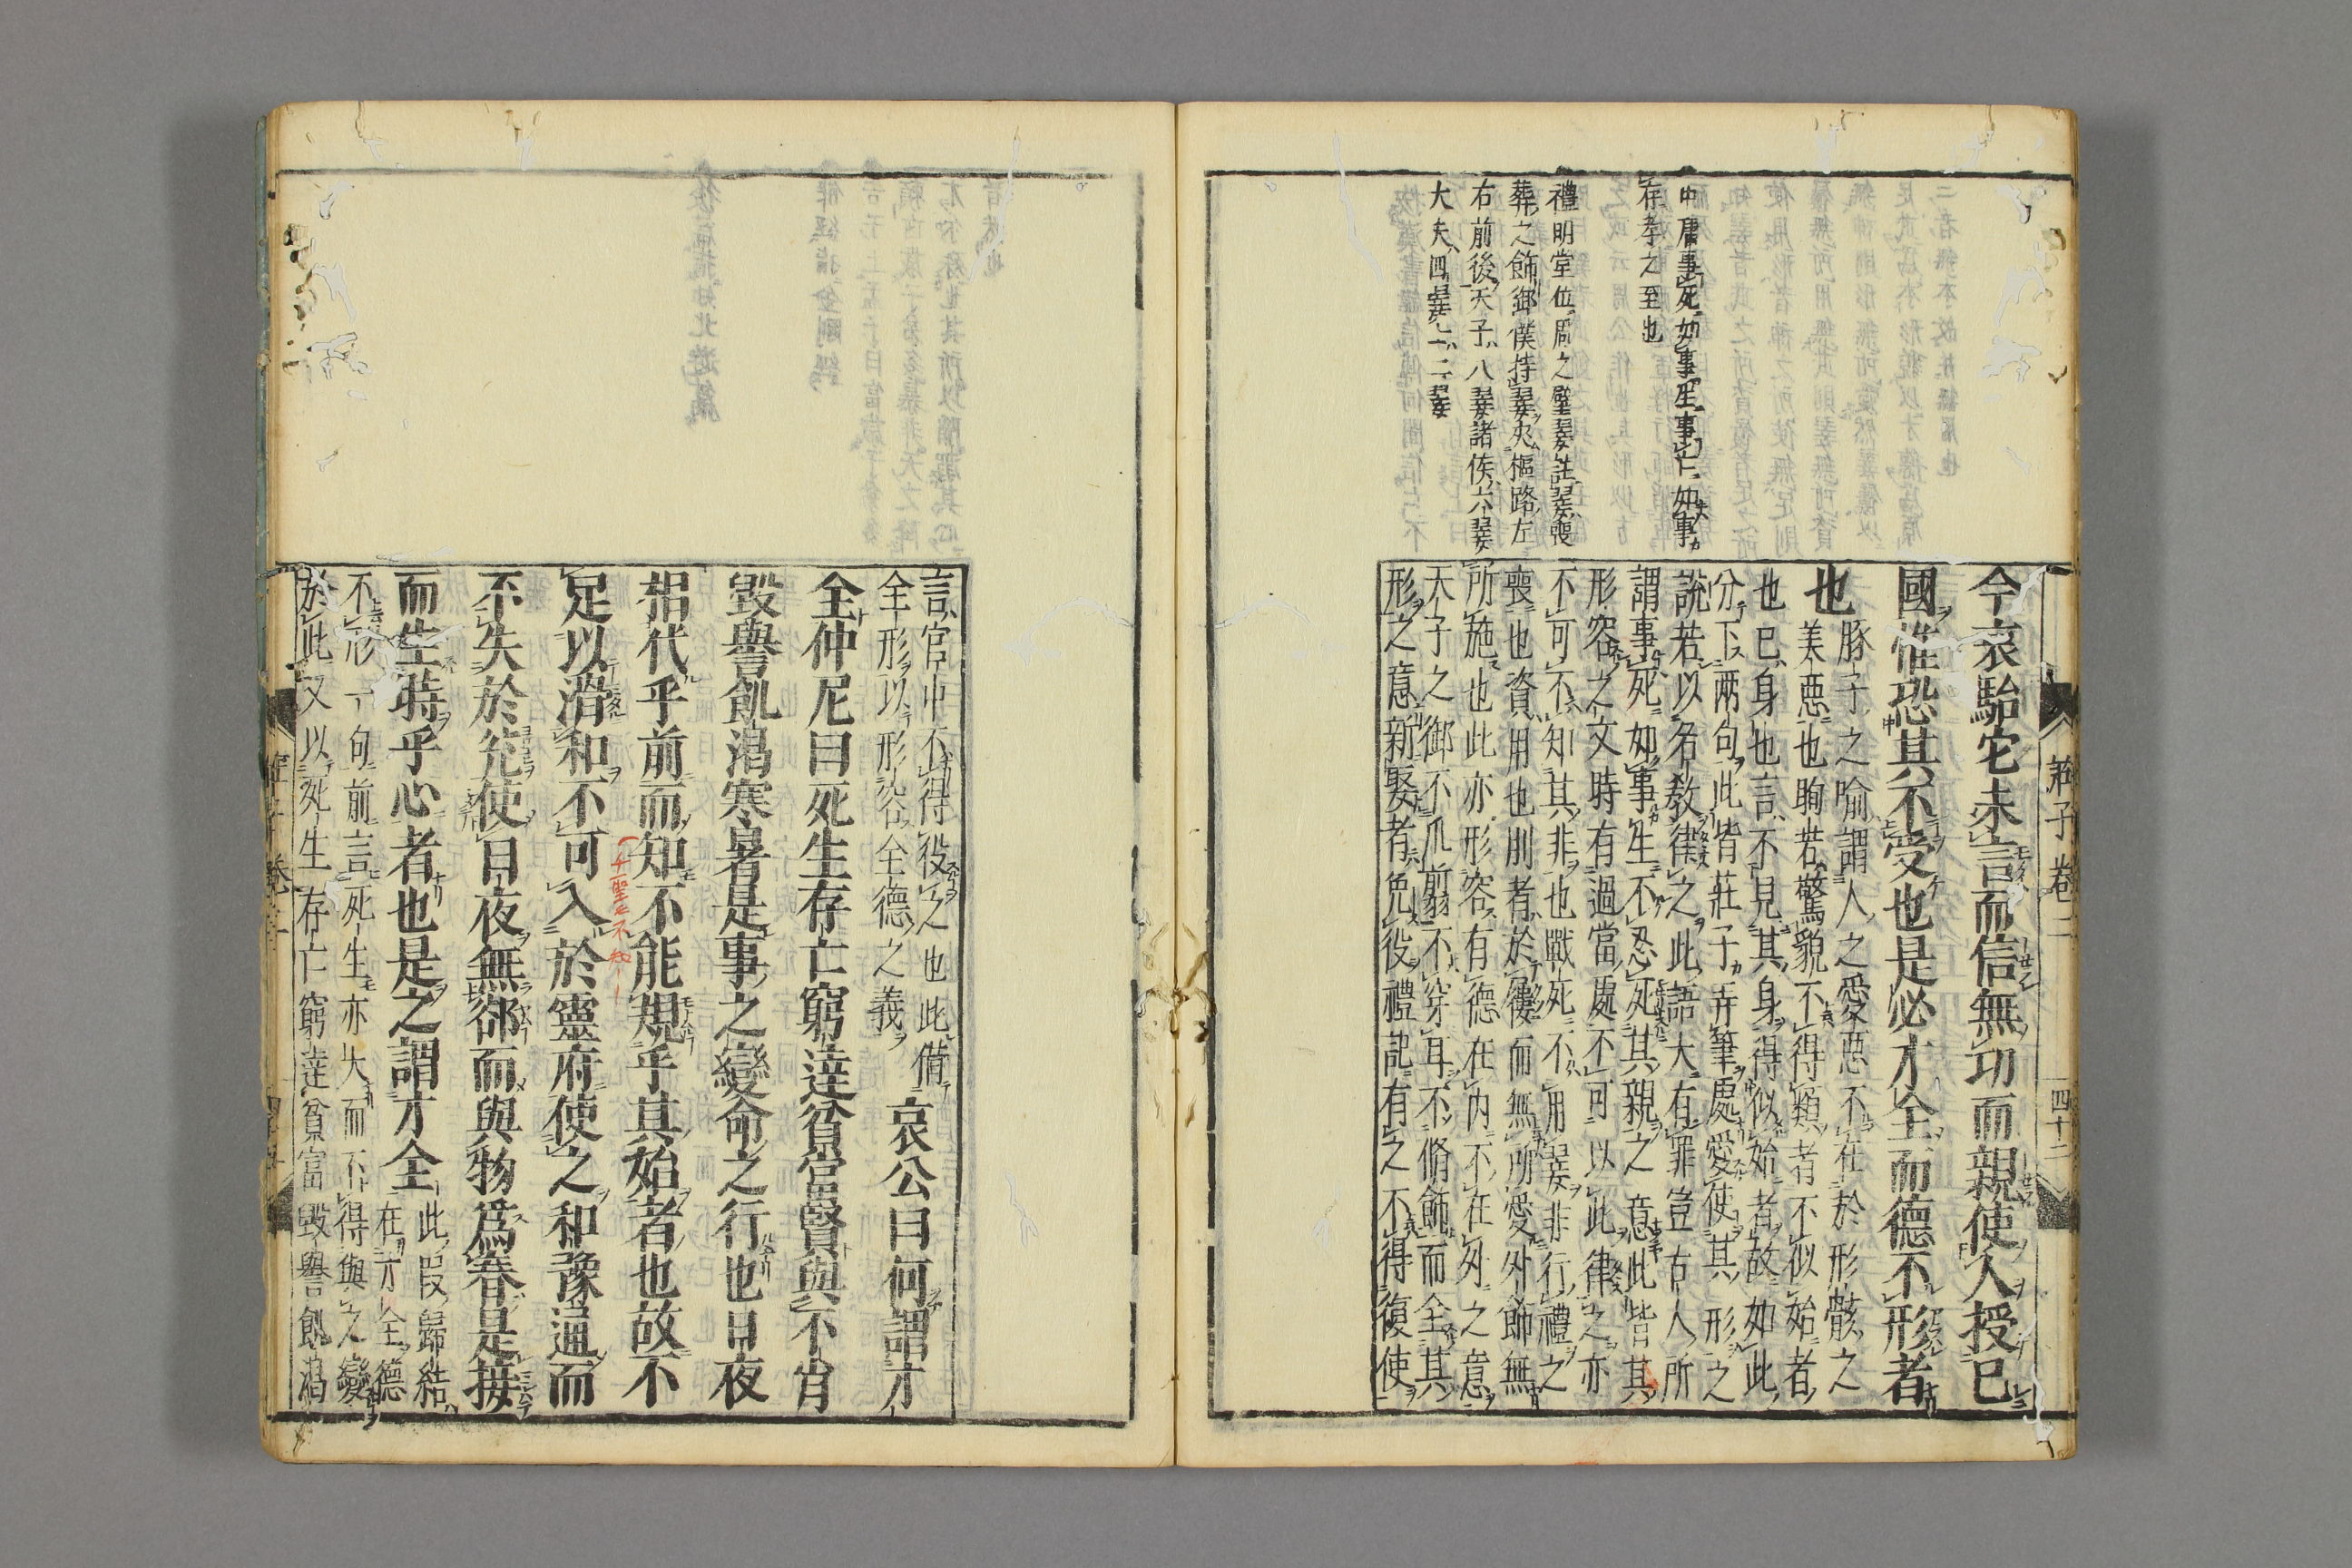 中庸事死如事生事亡如事
存孝之至也
禮明堂位周之璧翣註翣喪
葬之飾御僕持翣夾柩路左
右前後天子八翣諸侯六翣
大夫四翣士二翣
莊子卷二
四十二
今哀駘它未言而信無功而親使人授己
國惟恐其不受也是必才全而德不形者
也
豚子之喻謂人之愛惡不在於形骸之
美惡也眴若驚貌不得類者不似始者
也已身也言不見其身得似始者故如此
分下兩句此皆莊子弄筆處愛使其形之
說若以名教律之此語大有罪豈古人所
謂事死如事生不忍死其親之意此皆其
形容之文時有過當處不可以此律之亦
不可不知其非也戰死不用翣非行禮之
喪也資用也刖者於屨而無所愛外飾無
所施也此亦形容有德在內不在外之意
天子之御不爪翦不穿耳不脩飾而全其
形之意新娶者免役禮記有之不得復使
言官中不得役之也此借
全形以形容全德之義
哀公曰何謂才
全仲尼曰死生存亡窮達貧富賢與不肖
毀譽飢渴寒暑是事之變命之行也日夜
相代乎前而知不能規乎其始者也故不
足以滑和不可入於靈府使之和豫通而
不失於兌使日夜無郤而與物為春是接
而生時乎心者也是之謂才全
此段歸結
在才全德
不形一句前言死生亦大而不得與之變
於此又以死生存亡窮達貧富毀譽飢渴